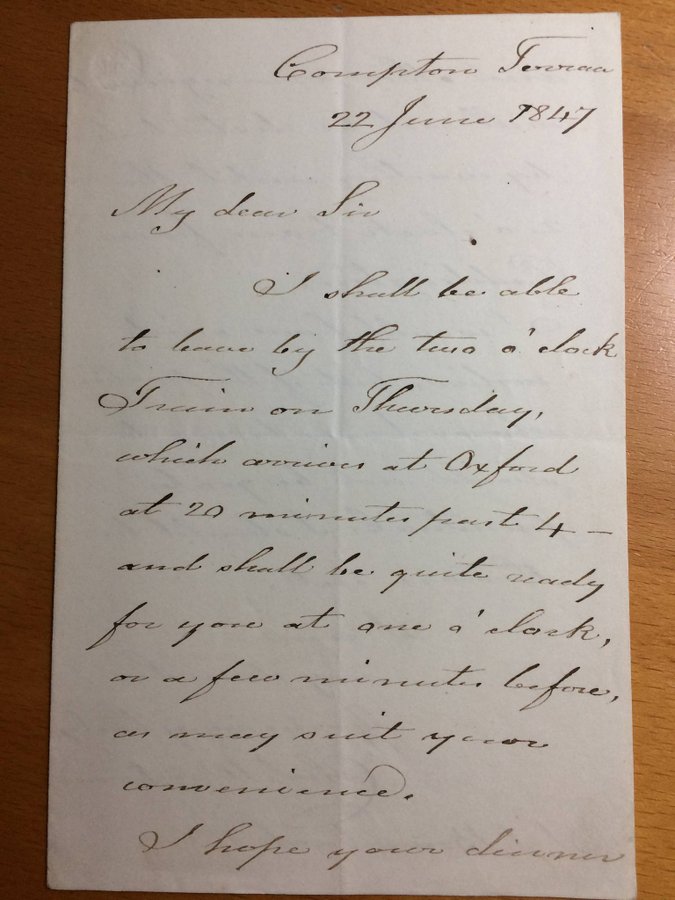 Compton Terrace
22 June 1847
My dear Sir
I shall be able
to leave by the two o'clock
Train on Thursday,
which arrives at Oxford
at 20 minutes past 4 —
and shall be quite ready
for you at one o'clock,
or a few minutes before,
as may suit your
convenience.
I hope your dinner